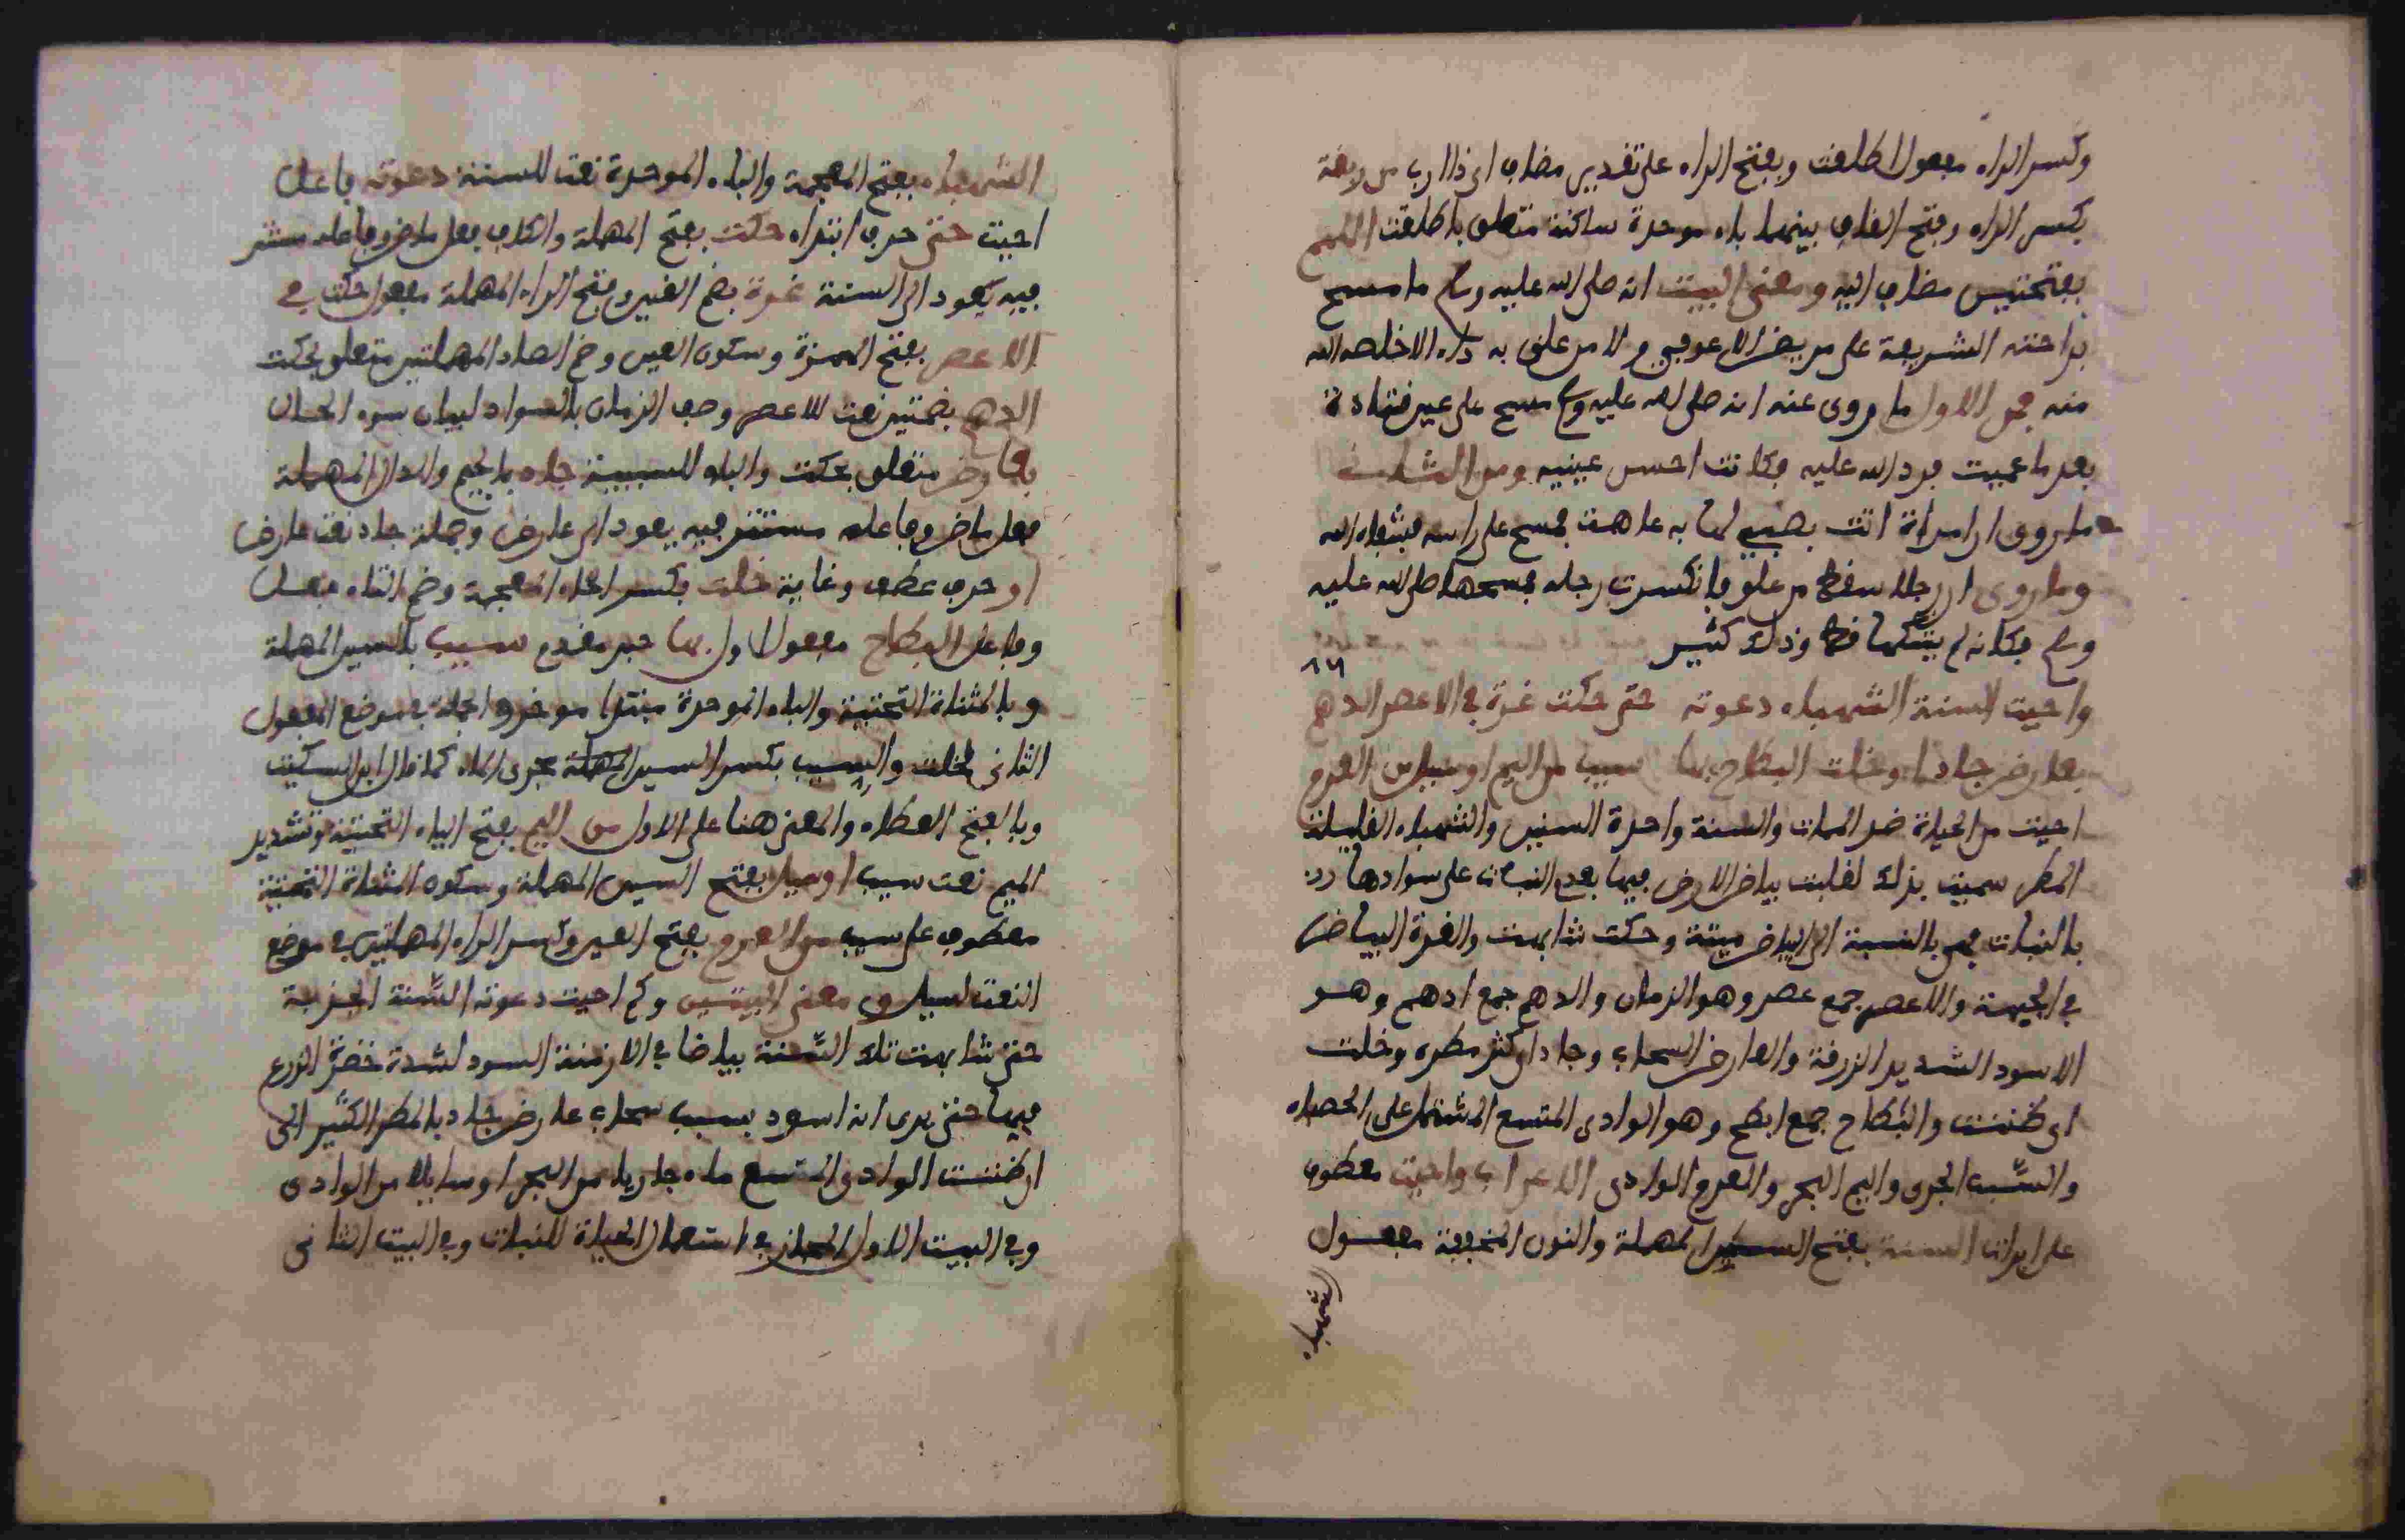 وكسر الراء مفعول اطلقت وبفتح الراء على تقدير مضاف اي ذا ارب من ربقة
بكسر الراء وفتح القاف بينهما باء موحدة ساكنة متعلق باطلقت اللمم
بفتحتين مضاف اليه ومعنى البيت انه صلى الله عليه وسلم ما مسح
براحته الشريفة على مريض الا عوفي ولا من علق به داء الا خلصه الله
منه فمن الاول ما روى عنه انه صلى الله عليه وسلم مسح على عين قتادة
بعد ما عميت فرد الله عليه فكانت احسن عينيه ومن الثاني
ما روى ان امراة اتت بصبي لها به عاهة فمسح على راسه فشفاه الله
وما روى ان رجلا سقط من علو فانكسرت رجله فمسحها صلى الله عليه
وسلم فكانه لم يشتكها قط وذلك كثير
٨٦
واحيت السنة الشهباء دعوته حتى حكت غرة في الاعصر الدهم
بعارض جاد او خلت البطاح بها سيب من اليم او سيل من العرم
احيت من الحياة ضد الممات والسنة واحدة السنين والشهباء القليلة
المطر سميت بذلك لغلبت بياض الارض فيها بعدم النبات على سوادها
بالنبات فهي بالنسبة الى البياض ميتة وحكت شابهت والغرة البياض
في الجبهة والاعصر جمع عصر وهو الزمان والدهم جمع ادهم وهو
الاسود الشديد الزرقة والعارض السحاب وجاد اي كثر مطره وخلت
اي ظننت والبطاح جمع ابطح وهو الوادي المتسع المشتمل على الحصباء
والسيب الجرى واليم البحر والعرم الوادى الاعراب واحيت معطوف
على ابرات السنة بفتح السين المهملة والنون المخففة مفعول
الشهباء
الشهباء بفتح المعجمة والباء الموحدة نعت للسنة دعوته فاعل
احيت حتى حرف ابتداء حكت بفتح المهملة والكاف فعل ماض وفاعله مستتر
فيه يعود الى السنة غرة بضم الغين وفتح الراء المهملة مفعول حكت في
الاعصر بفتح الهمزة وسكون العين وضم الصاد المهملتين متعلق بحكت
الدهم بضمتين نعت للاعصر وصف الزمان بالسواد لبيان سوء الحال
بعارض متعلق بحكت والباء للسببية جاد بالجيم والدال المهملة
فعل ماض وفاعله مستتر فيه يعود الى عارض وجملة جاد نعت عارض
او حرف عطف وغاية خلت بكسر الخاء المعجمة وضم التاء فعل
وفاعل البطاح مفعول اول بها خبر مقدم سيب بالسين المهملة
وبالمثناة التحتية والباء الموحدة مبتدا موخر والجملة في موضع المفعول
الثانى لخلت والسيب بكسر السين المهملة مجرى الماء كما قال ابن السكيت
وبالفتح العطاء والمعنى هنا على الاول من اليم بفتح الياء التحتية وتشديد
الميم نعت سيب او سيل بفتح السين المهملة وسكون المثناة التحتية
معطوف على سيب من العرم بفتح العين وكسر الراء المهملتين في موضع
النعت لسيل ومعنى البيتين وكم احيت دعوته السنة المجدبة
حتى شابهت تلك السنة بياضا في الازمنة السود لشدة خضرة الزرع
فيها حتى يرى انه اسود بسبب سحاب عارض جاد بالمطر الكثير الى
ان ظننت الوادى المتسع ماء جاريا من البحر او سايلا من الوادى
وفي البيت الاول المجاز في استعمال الحياة للنبات وفي البيت الثانى